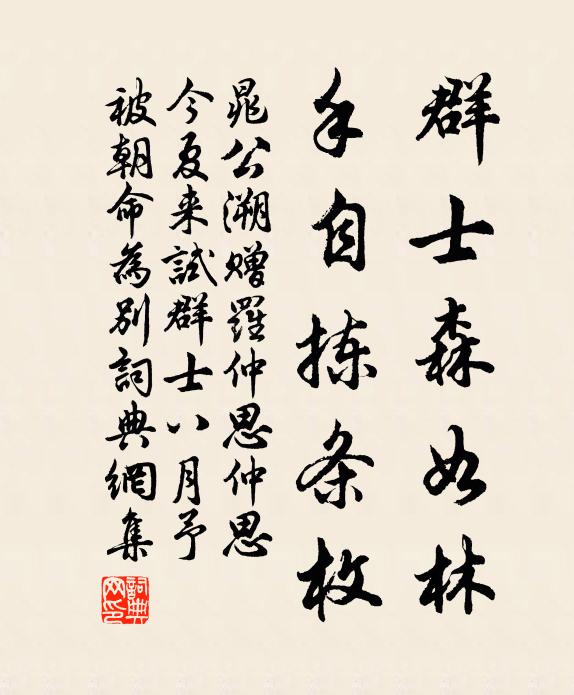 群士森如林
手自拣条枚
晁公溯赠羅仲思仲思
今夏来試群士八月予
被朝命為别詞典網集
詞典網印